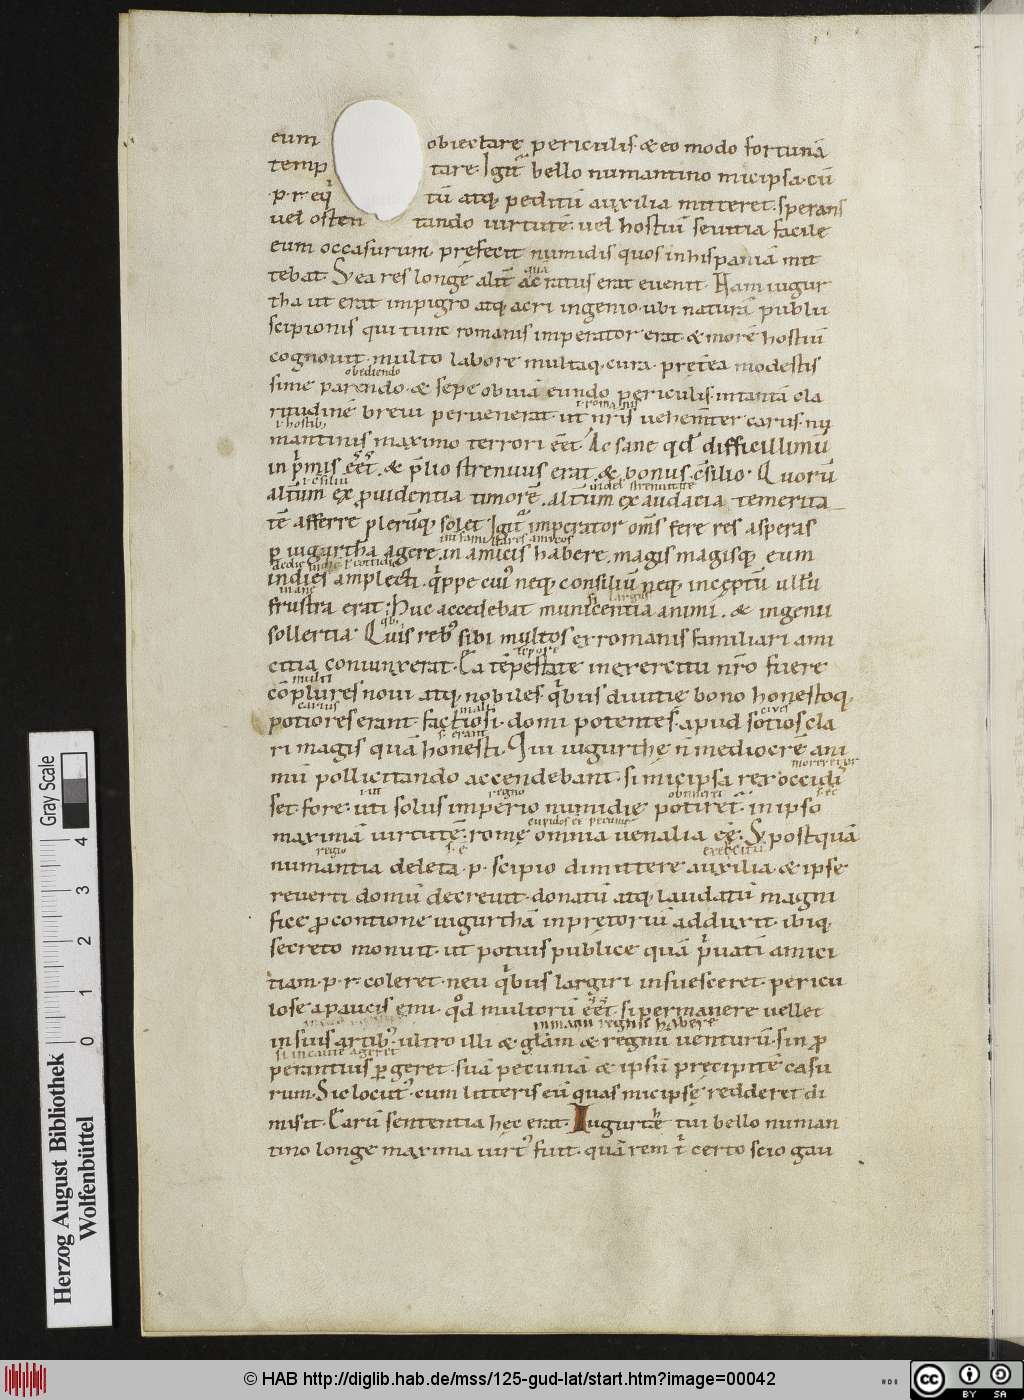 eum obiectare periculis & eo modo fortunā
temp tare. Igit̄ bello numantino micipsa. cū
.p.r. eq̄ tū atq; peditū auxilia mitteret. sperans
uel osten tando uirtutē. uel hostiū seuitia facile
eum occasurum. prefecit numidis quos in hispaniā mit
tebat. S; ea res longe alit̄ ac ratus erat euenit. Nam iugur
qua
tha ut erat impigro atq; acri ingenio. ubi naturā publii
scipionis qui tunc romanis imperator erat. & morē hostiū
cognouit. multo labore multaq; cura. pret̄ea modestis
obediendo
sime parendo. & sepe obuiā eundo periculis. in tantā cla
ritudinē breui peruenerat. ut nr̄is uehem̄ter carus. nu
.i. romanis
i. hostib;
mantinis maximo terrori eēt. Ac sane qd̄ difficillimū
in p̄mis eēt. & p̄lio strenuus erat. & bonus c̄silio. Quorū
i. c̄siliū
alt̄um ex puidentia timorē. alt̄um ex audacia temerita
tē afferre plerūq; solet. Igit̄ imperator om̄s fere res asperas
in familiares amicos
p iugurtha agere. in amicis habere. magis magisq; eum
indies amplecti. q̄ppe cui' neq; consiliū neq; inceptū ullū
inane
frustra erat. Huc accedebat municentia animi. & ingenii
sollertia. Quis reb; sibi multos ex romanis familiari ami
q̄b;
citia coniunxerat. Ea tēpestate in exercitu nr̄o fuere
tēpore
multi
cōplures noui atq; nobiles. q̄bus diuitie bono honestoq;
carius
potiores erant. factiosi. domi potentes. apud sotios cla
mali
s. erant
ri magis quā honesti. Qui iugurthe n̄ mediocrē ani
mū pollicitando accendebant. si micipsa rex occidi
moreretur
set. fore. uti solus imperio numidie potiret. in ipso
regno
maximā uirtutē. rome omnia uenalia eē. S; postquā
numantia deleta .p. scipio dimittere auxilia. & ipse
regio
reuerti domū decreuit. donatū atq; laudatū magni
fice pcontione iugurthā in pretoriū adduxit. ibiq;
secreto monuit. ut potius publice quā p̄uatī amici
tiam .p.r. coleret. neu q̄bus largiri insuesceret. pericu
lose a paucis emi. qd̄ multorū eēt. si permanere uellet
in magnis regnis habere
in suis artib;. ultro illi & gl̄am & regnū uenturū. sin p
si incaute ageret
perantius pgeret. suā pecuniā & ipsū precipitē casu
rum. Sic locut' cum litteris eū quas micipse redderet di
misit. Earū sententia hec erat. Iugurthe tui bello numan
tino longe maxima uirt' fuit. quā rem t̄ certo scio gau
Herzog August Bibliothek
Wolfenbüttel
0 1 2 3 4
Gray Scale
© HAB http://diglib.hab.de/mss/125-gud-lat/start.htm?image=00042
cc BY SA